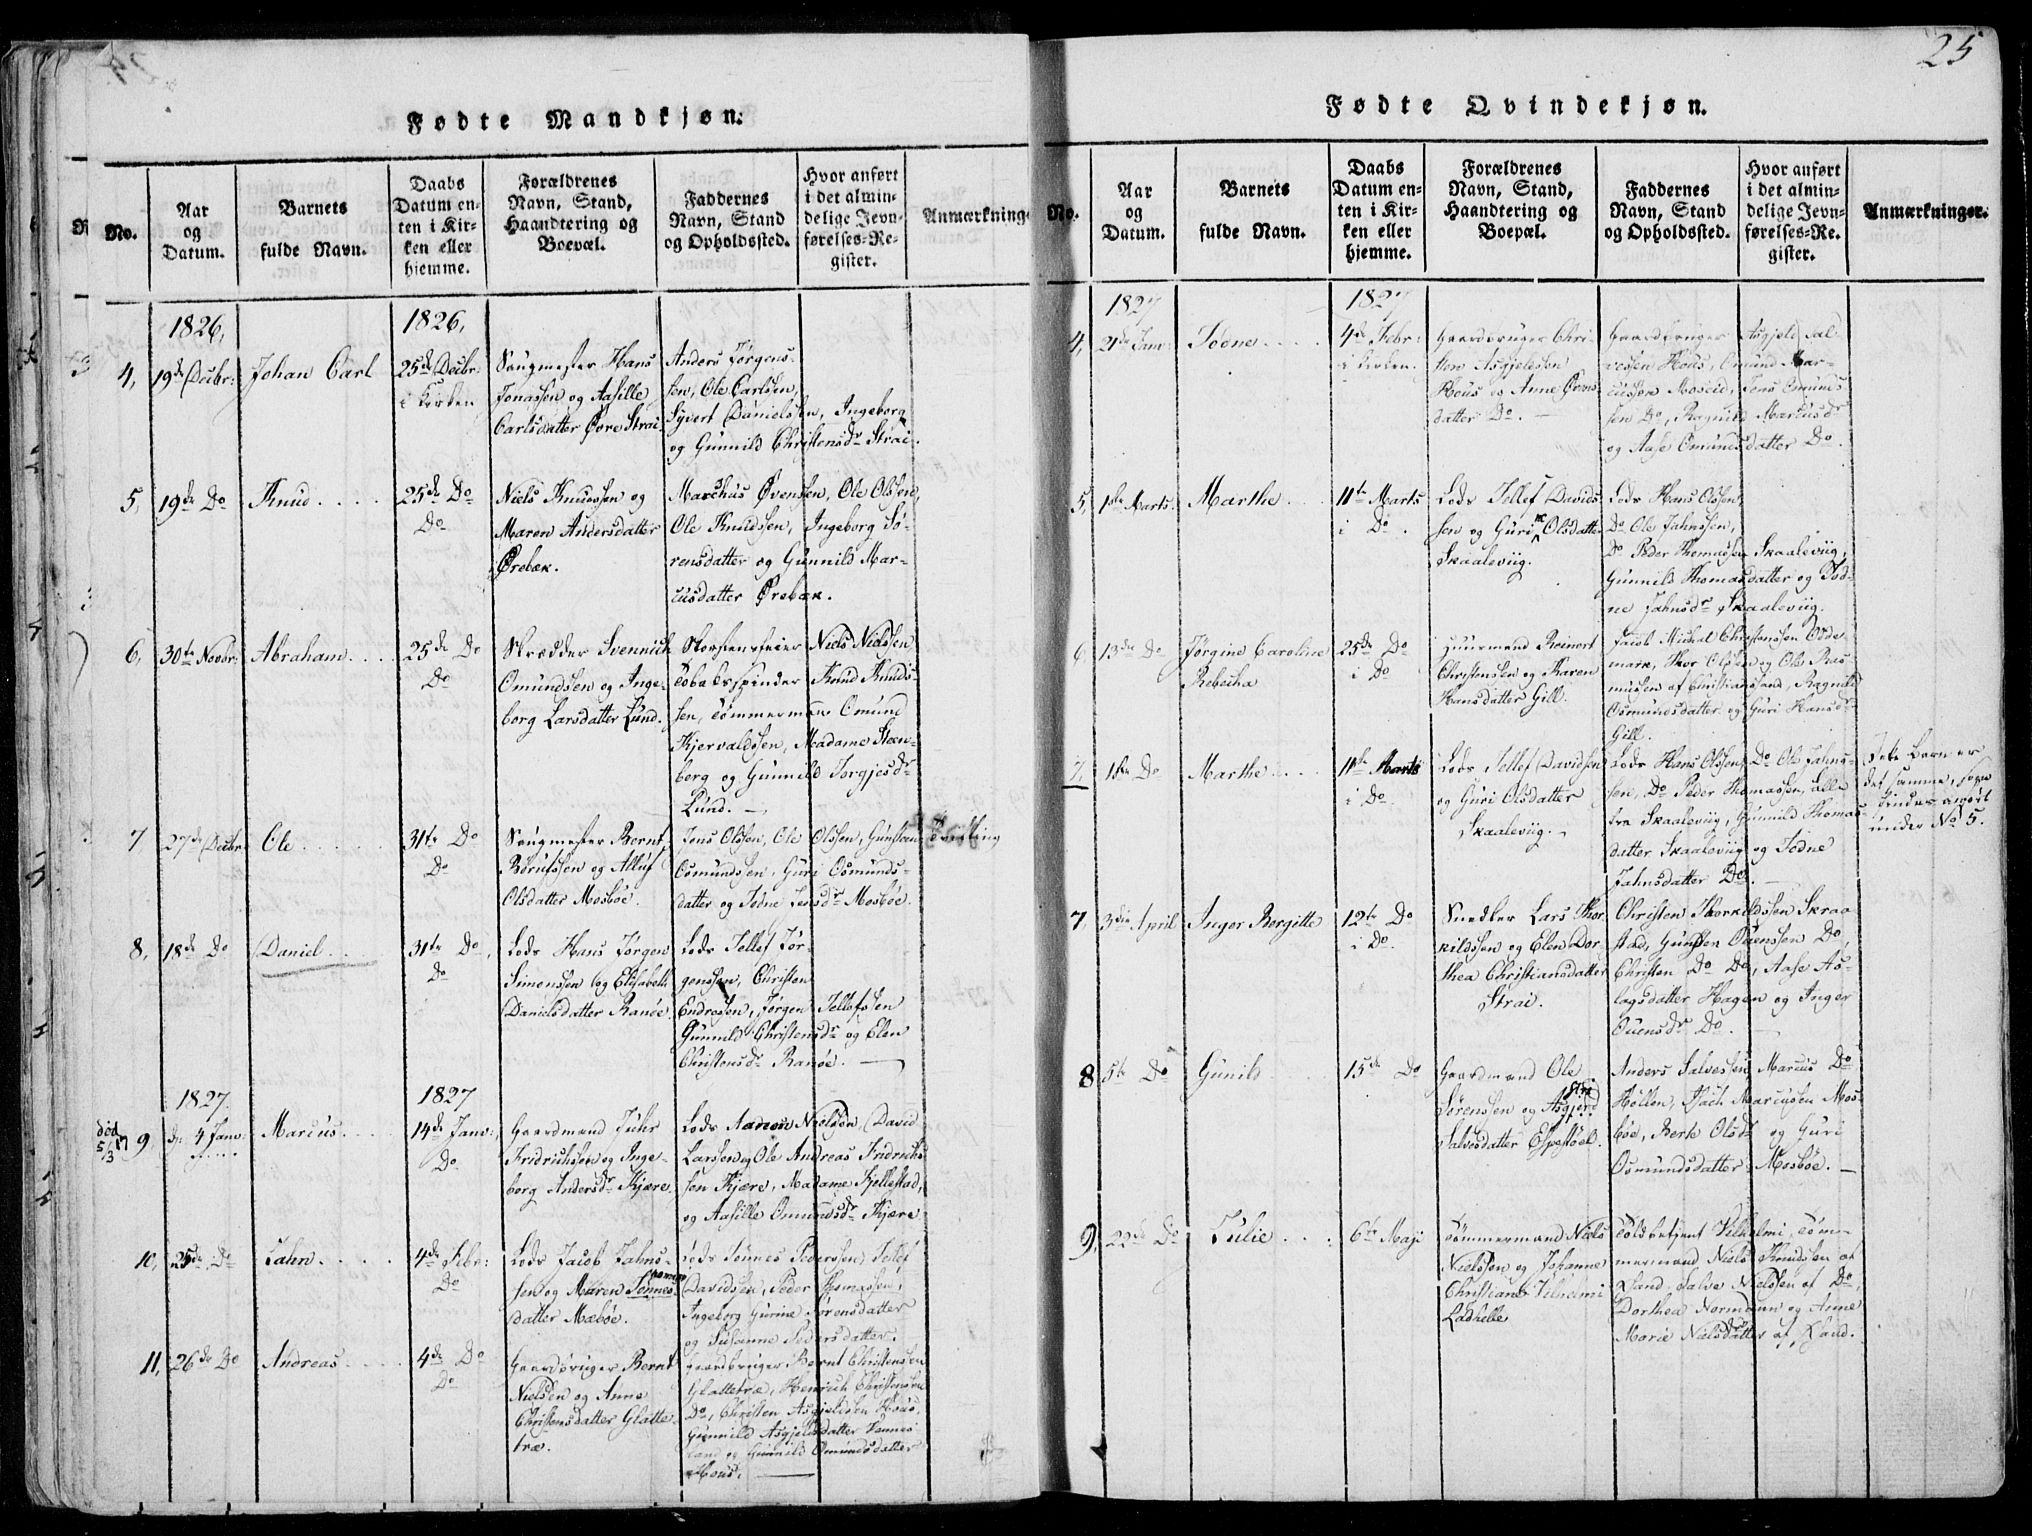 25
Fødte Mandkjøn.
No.
Aar og Datum.
Barnets fulde Navn.
Daabs Datum enten i Kirken eller hjemme.
Forældrenes Navn, Stand, Haandtering og Boepæl.
Faddernes Navn, Stand og Opholdssted.
Hvor anført i det almindelige Jevnførelses-Register.
Anmærkning
1826,
1826,
4, 19de Decbr: Johan Carl 25de Decbr: i Kirken
Sangmester Hans
Jonassen og Aasille
Carlsdatter Øvre Strai.
Anders Jørgens-
sen, Ole Carlsen,
Syvert Danielsen, Ingeborg
og Gunnild Christensdr Strai.
5, 19de Do Knud. 25de Do Do
Niels Knudssen og
Maren Andersdatter
Ørebæk.
Marchus Øvensen, Ole Olssen,
Ole Knudssen, Ingeborg Sø-
rensdatter og Gunnild Mar-
cusdatter Ørebæk.
6, 30te Novbr: Abraham. 25de Do Do
Skrædder Svennich
Omundssen og Inge-
borg Larsdatter Lund.
Skorsteensfeier Niels Nielssen
Tobaksspinder Knud Knuds-
sen, Tømmerman Omund
Kjervaldssen, Madame Steen-
berg og Gunnild Torgjesdr
Lund.
7 27de Decbr Ole 31te Do Do
Sangmester Bernt
Børufssen og Alluf
Olsdatter Mosbøe.
Jens Olssen, Ole Olssen, Gunsteen
Osmundssen, Guri Osmunds-
datter og Todne Jensdr Mosbøe.
Tvilling
8, 18de Do Daniel 31te Do, Do
Lods Hans Jørgen
Simonssen og Elisabeth
Danielsdatter Randøe.
Lods Tellef Jør-
genssen, Christen
Endressen, Jørgen Tellefssen
Gunnild Christensdr og Elen
Christensdr Randøe.
1827.
1827
død 5/3 27 9 d. 4 Janv: Marcus. 14de Janv:, Do
Gaardmand Juhr
Fridrichssen og Inge-
borg Andersdr Kjære
Lods Aanen Nielsen, David
Larssen og Ole Andreas Fridrichs
sen Kjære, Madame Kjellestad,
og Aasille Omundsdr Kjære
10, 25de Do Jahn 4de Febr: Do
Lods Jacob Jahns-
sen og Maren Tønnes-
datter Mæbøe.
Lods Tønnes Pederssen, Tellef
Davidssen, Peder Thomassen,
Ingeborg Gurine Sørensdatter
og Susanne Pedersdatter.
11, 26de Do Andreas 4de Do Do
Gaardbruger Bernt
Nielsen og Anne
Christensdatter Glatte-
træ.
Gaardbruger Bernt Christensen
Glattetræ, Henrich Christensen
Do, Christen Asgjeldsen Hous,
Gunnild Asgjeldsdatter
land og Gunnild Omundsdatter
Hous.
Fødte Qvindekjøn.
No.
Aar og Datum.
Barnets fulde Navn.
Daabs Datum enten i Kirken eller hjemme.
Forældrenes Navn, Stand, Haandtering og Boepæl.
Faddernes Navn, Stand og Opholdssted.
Hvor anført i det almindelige Jevnførelses-Register.
Anmærkninger.
1827
1827
4, 21de Janv: Todne 4de Febr: i Kirken.
Gaardbruger Chri-
sten Asgjeldsen
Hous og Anne Øvens
datter Do.
Gaardbruger Asgjeld Sal-
vessen Hous, Omund Mar-
cussen Moseid, Jens Omunds
sen Do, Ragnild Marcusdr
og Aase Omundsdatter Do.
5, 1ste Marts. Marthe 11te Marts i Do.
Lods Tellef Davids
sen og Guri Olsdatter
Skaaleviig.
Lods Hans Olssen,
Do Ole Jahnssen,
Do Peder Thomassen Skaaleviig,
Gunnild Thomasdatter og Tod-
ne Jahnsdr Skaaleviig.
6 13de Do Jørgine Caroline Rebecha 25de Do i Do
Huusmand Reinert
Christenssen og Karen
Hansdatter Gill.
Jacob Michal Christenssen Odde-
mark, Thor Olssen og Ole Ras-
mussen af Christianssand, Ragnild
Osmundsdatter og Guri Hansdr
Gill.
7, 1ste Do Marthe 11te Marts i Do
Lods Tellef Davidsen
og Guri Olsdatter
Skaaleviig.
Lods Hans Olssen, Do Ole Jahns-
sen, Do Peder Thomassen, alle
fra Skaaleviig, Gunnild Thomas-
datter Skaaleviig og Todne
Jahnsdatter Do.
Dette Barn er
det samme, som
findes anført
under No 5.
7, 3die April Inger Bergitte 12te Do i Do.
Snedker Lars Thor
kildssen og Elen Dor-
thea Christiansdatter
Strai.
Christen Thorkildssen Skraa
stad, Gunsten Ouenssen Do,
Christen Do Do, Aase As-
lagsdatter Hagen og Inger
Ouensdr Do.
8 5te Do Gunild 15de Do
Gaardmand Ole
Sørenssen og Asgjerd
Salvesdatter Espestøel.
Anders Salvessen, Marcus Do
Høllen, Isach Marcussen Mos-
bøe, Berte Olsdr og Guri
Osmundsdatter Mosbøe.
9, 22de Do Julie 6te Maji
Tømmermand Niels
Nielssen og Johanne
Christiane Vilhelmi
Ladhelle
Toldbetjent Vilhelmi, Tøm-
mermand Niels Knudssen af
Lund, Salve Nielssen af Do,
Dorthea Normann og Anne
Marie Nielsdatter af Lund.